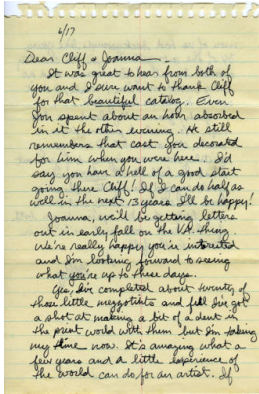 6/17
Dear Cliff & Joanna —
It was great to hear from both of
you and I sure want to thank Cliff
for that beautiful catalog. Even
Jon spent about an hour absorbed
in it the other evening. He still
remembers that cast you decorated
for him when you were here. I'd
say you have a hell of a good start
going there Cliff! If I can do half as
well in the next 13 years I'll be happy!
Joanna, we'll be getting letters
out in early fall on the VA. thing.
We're really happy you're interested
and I'm looking forward to seeing
what you're up to these days.
Yes, I've completed about twenty of
those little mezzotints and feel I've got
a shot at making a bit of a dent in
the print world with them but I'm taking
my time now. It's amazing what a
few years and a little experience of
the world can do for an artist. If